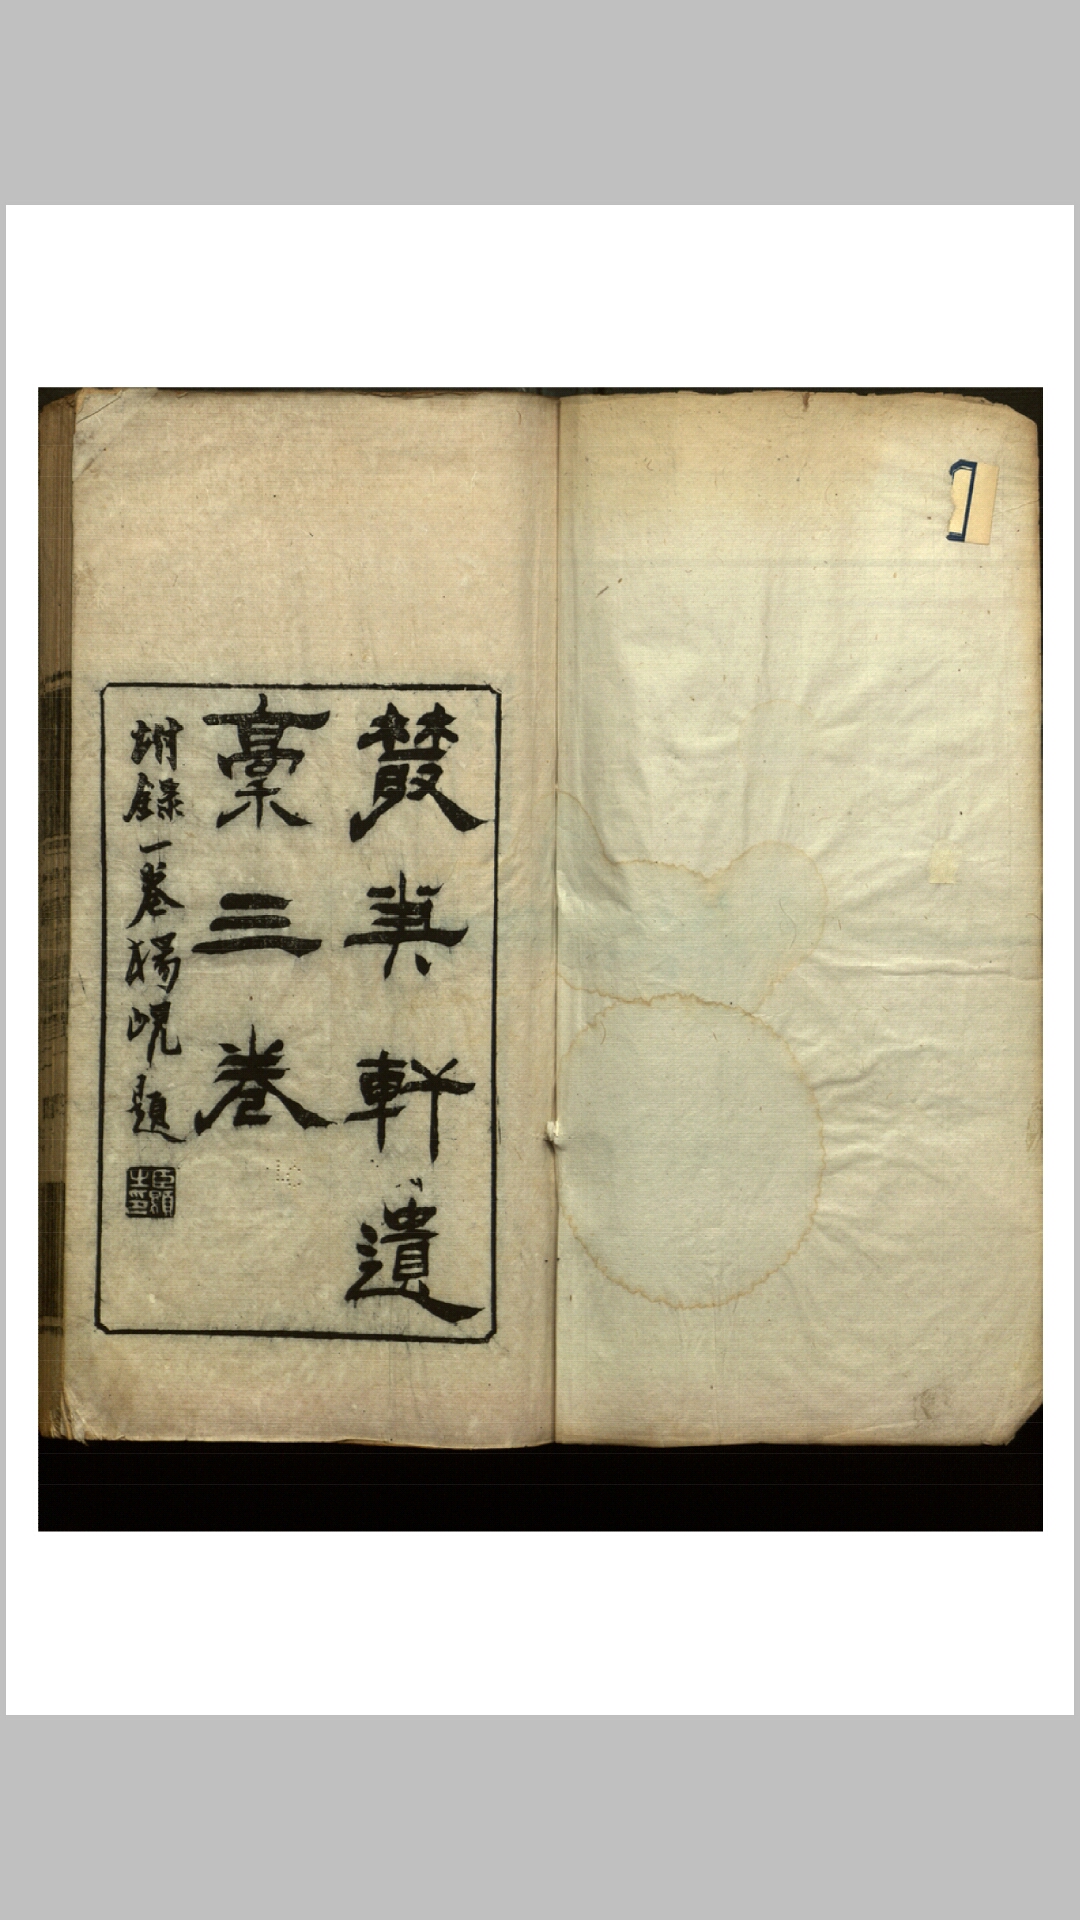 軒遺
稾三卷
附錄一卷楊峴題